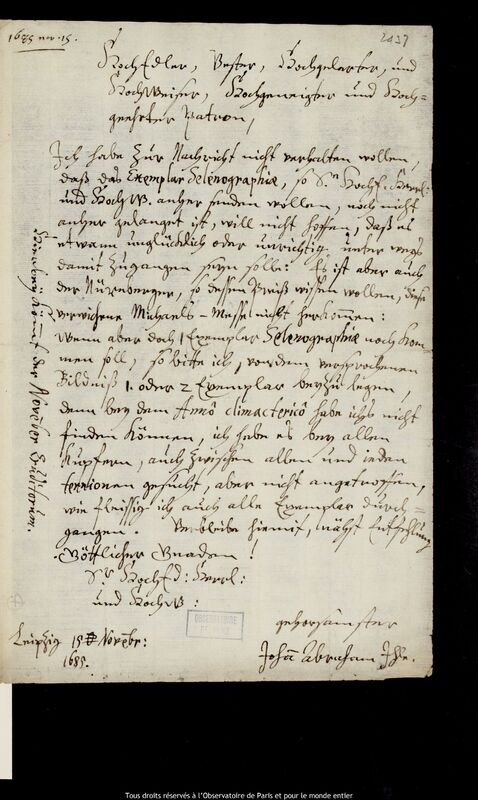 1685 nov. 15.
2037
HochEdler, Vester, Hochgelarter, und
HochWeiser, Hochgeneigter und Hoch=
geehrter Patron,
Ich habe zur Nachricht nicht verhalten wollen,
daß das Exemplar Selenographiæ, so Sr. HochE. Herrl:
und HochW. anher senden wollen, noch nicht
anher gelanget ist, will nicht hoffen, daß es
etwann unglücklich oder unrichtig unter wegs
damit zugangen seyn solle: Es ist aber auch
der Nürnberger, so dessen Preiß wissen wollen, diese
verwichene Michaels-Messe nicht herkommen:
Wenn aber doch 1 Exemplar Selenographiæ noch kom=
men soll, so bitte ich, von dem versprochenen
Bildniß 1. oder 2 Exemplar beyzulegen,
denn bey dem Anno climactericô habe ichs nicht
finden können, ich habe es bey allen
Kupfern, auch zwischen allen und jeden
ternionen gesucht, aber nicht angetroffen,
wie fleissig ich auch alle Exemplar durch=
gangen. Verbleibe hiemit, nächst Empfehlung
Göttlicher Gnaden!
Sr HochEd: Herrl:
und HochW:
gehorsamster
Leipzig 15 Novebr:
1685.
Johan Abraham Ihle.
Hierbey kommt der November Eruditorum.
OBSERVATOIRE
Tous droits réservés à l'Observatoire de Paris et pour le monde entier